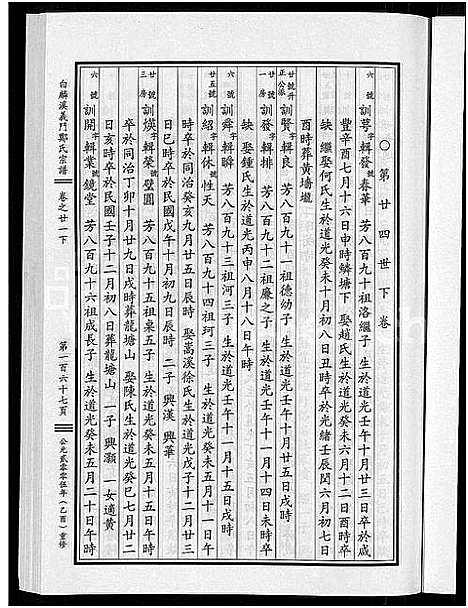 ○第廿四世下卷
六號 訓蕚字輯發春華 芳八百九十祖洛繼子 生於道光壬午十月廿三日卒於咸
豐辛酉七月十六日申時鱗塘下 娶趙氏生於道光癸未六月十二日酉時卒
缺 繼娶何氏生於道光癸未十月初八日丑時卒於光緒壬辰閏六月初七日
酉時葬黃墻壠
廿號升正公派 訓賢字輯良 芳八百九十一祖德幼子 生於道光壬午十月廿五日戌時
廿號一房 訓發字輯排 芳八百九十二祖廉之子 生於道光壬午十一月十四日未時卒
缺 娶鍾氏生於道光丙申八月十八日午時
六號 訓舜字輯瞬 芳八百九十三祖河三子 生於道光壬午十一月十五日戌時
廿五號 訓紹字輯休性天 芳八百九十四祖珂三子 生於道光癸未五月十一日午
時卒於同治癸亥九月廿五日辰時 娶嵩溪徐氏生於道光戊子十二月廿三
日巳時卒於民國戊午十月初九日辰時 二子 興漢 興華
廿號三房 訓煐字輯榮璧圓 芳八百九十五祖臬五子 生於道光癸未五月十五日戌時
卒於同治丁卯十月廿九日戌時葬龍塘山 娶陳氏生於道光癸巳七月廿二
日亥時卒於民國壬子十二月初八日葬龍塘山 一子 興灝 一女適黃
六號 訓開字輯業鏡堂 芳八百九十六祖成長子 生於道光癸未五月二十日午時
白麟溪義門鄭氏宗譜 卷之廿一下 第一百六十七頁 公元貳零零伍年(乙酉)重修